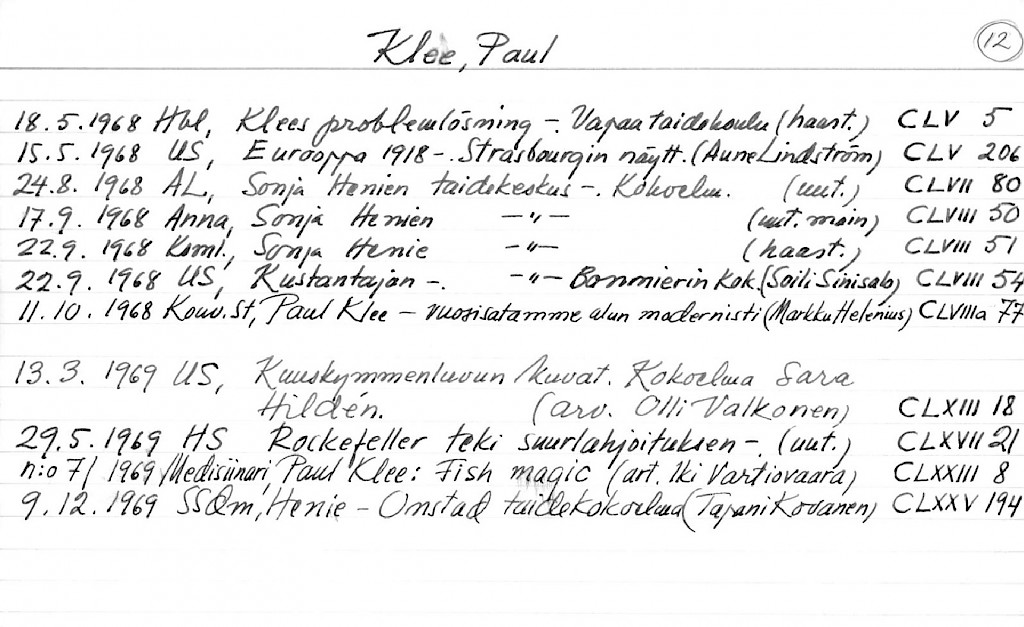 Klee, Paul
12
18.5.1968 Hbl, Klees problemlösning -. Vapaa taidekoulu (haast.) CLV 5
15.5.1968 US, Eurooppa 1918 -. Strasbourgin näytt. (Aune Lindström) CLV 206
24.8.1968 AL, Sonja Henien taidekeskus -. Kokoelm. (uut.) CLVII 80
17.9.1968 Anna, Sonja Henien -"- (uut. main) CLVIII 50
22.9.1968 Koml., Sonja Henie -"- (haast.) CLVIII 51
22.9.1968 US, Kustantajan -. -"- Bonnierin kok. (Soili Sinisalo) CLVIII 54
11.10.1968 Kouv.St, Paul Klee - vuosisatamme alun modernisti (Markku Helenius) CLVIIIa 77
13.3.1969 US, Kuuskymmenluvun kuvat. Kokoelma Sara
Hildén. (arv. Olli Valkonen) CLXIII 18
29.5.1969 HS Rockefeller teki suurlahjoituksen -. (uut.) CLXVII 21
n:o 7/1969 Medisiinari, Paul Klee: Fish magic (art. Iki Vartiovaara) CLXXIII 8
9.12.1969 SSOm, Henie - Onstad taidekokoelma (Tapani Kovanen) CLXXV 194